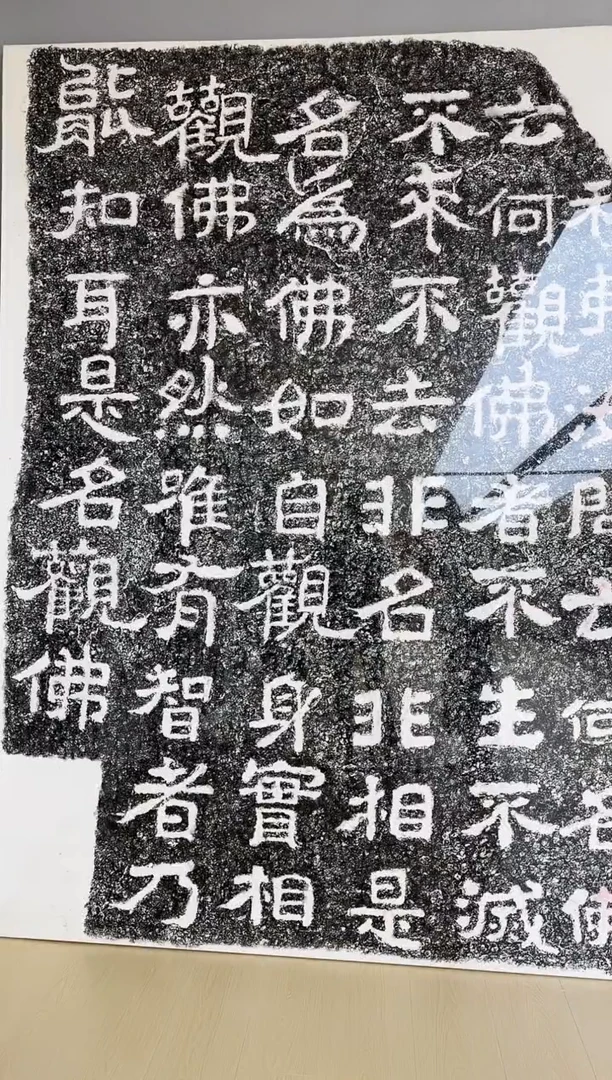 利汝問云何名佛
云何觀佛者不生不滅
不来不去非名非相是
名為佛如自觀身實相
觀佛亦然唯有智者乃
能知耳是名觀佛